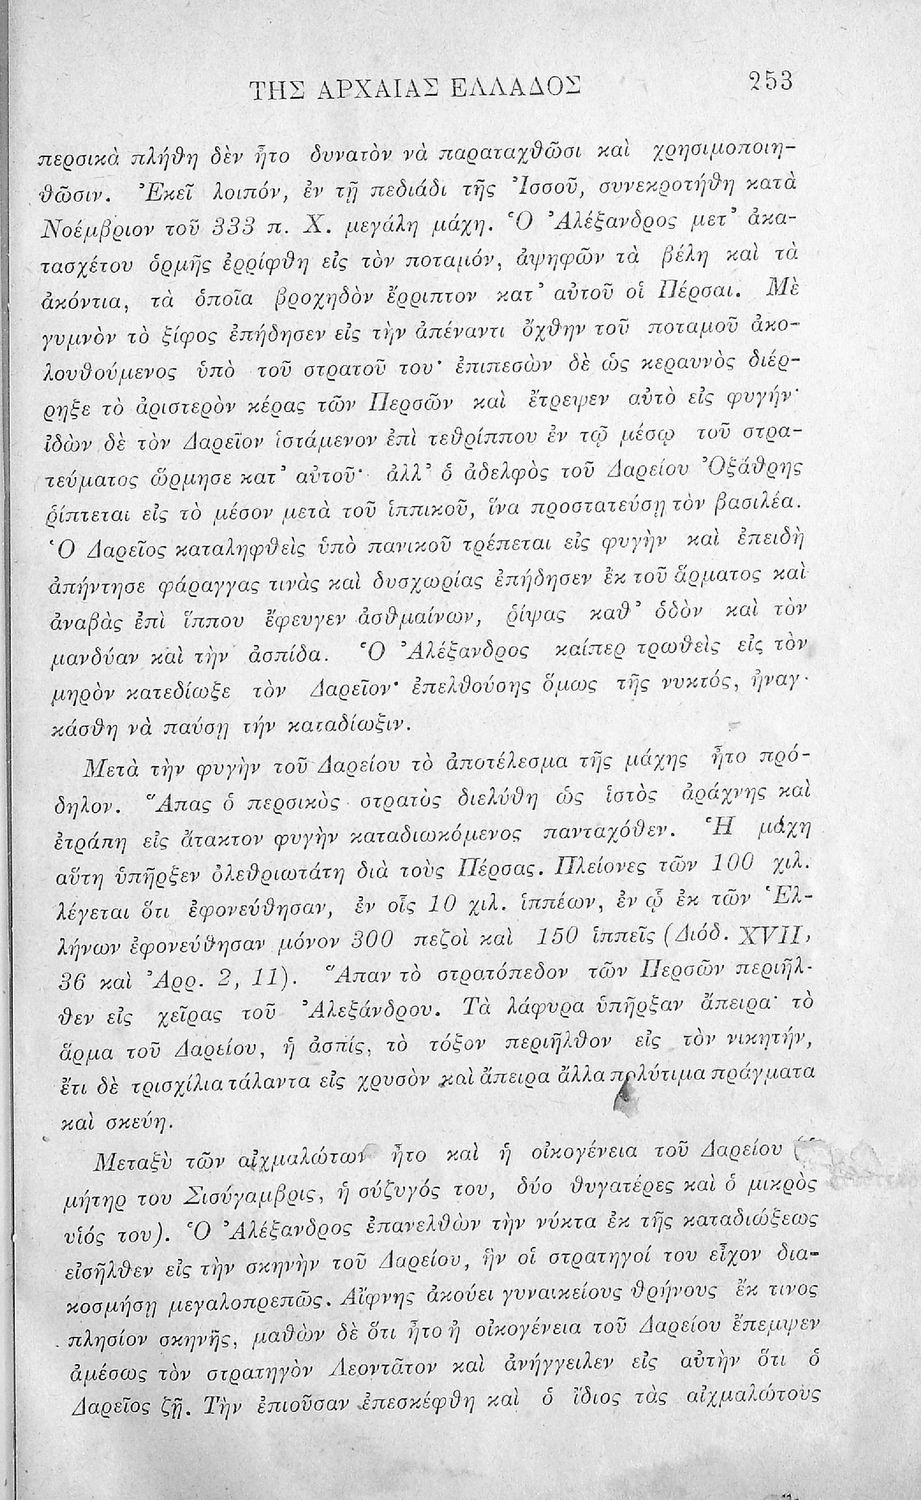 ΤΗΣ ΑΡΧΑΙΑΣ ΕΛΛΑΔΟΣ 253
περσικὰ πλήθη δὲν ἦτο δυνατὸν νὰ παραταχθῶσι καὶ χρησιμοποιη-
θῶσιν. Ἐκεῖ λοιπόν, ἐν τῇ πεδιάδι τῆς Ἰσσοῦ, συνεκροτήθη κατὰ
Νοέμβριον τοῦ 333 π. Χ. μεγάλη μάχη. Ὁ Ἀλέξανδρος μετ' ἀκα-
τασχέτου ὁρμῆς ἐρρίφθη εἰς τὸν ποταμόν, ἀψηφῶν τὰ βέλη καὶ τὰ
ἀκόντια, τὰ ὁποῖα βροχηδὸν ἔρριπτον κατ' αὐτοῦ οἱ Πέρσαι. Μὲ
γυμνὸν τὸ ξίφος ἐπήδησεν εἰς τὴν ἀπέναντι ὄχθην τοῦ ποταμοῦ ἀκο-
λουθούμενος ὑπὸ τοῦ στρατοῦ του· ἐπιπεσὼν δὲ ὡς κεραυνὸς διέρ-
ρηξε τὸ ἀριστερὸν κέρας τῶν Περσῶν καὶ ἔτρεψεν αὐτὸ εἰς φυγήν·
ἰδὼν δὲ τὸν Δαρεῖον ἱστάμενον ἐπὶ τεθρίππου ἐν τῷ μέσῳ τοῦ στρα-
τεύματος ὥρμησε κατ' αὐτοῦ· ἀλλ' ὁ ἀδελφὸς τοῦ Δαρείου Ὀξάθρης
ῥίπτεται εἰς τὸ μέσον μετὰ τοῦ ἱππικοῦ, ἵνα προστατεύσῃ τὸν βασιλέα.
Ὁ Δαρεῖος καταληφθεὶς ὑπὸ πανικοῦ τρέπεται εἰς φυγὴν καὶ ἐπειδὴ
ἀπήντησε φάραγγας τινὰς καὶ δυσχωρίας ἐπήδησεν ἐκ τοῦ ἅρματος καὶ
ἀναβὰς ἐπὶ ἵππου ἔφευγεν ἀσθμαίνων, ῥίψας καθ' ὁδὸν καὶ τὸν
μανδύαν καὶ τὴν ἀσπίδα. Ὁ Ἀλέξανδρος καίπερ τρωθεὶς εἰς τὸν
μηρὸν κατεδίωξε τὸν Δαρεῖον· ἐπελθούσης ὅμως τῆς νυκτός, ἠναγ-
κάσθη νὰ παύσῃ τήν καταδίωξιν.
Μετὰ τὴν φυγὴν τοῦ Δαρείου τὸ ἀποτέλεσμα τῆς μάχης ἦτο πρό-
δηλον. Ἅπας ὁ περσικὸς στρατὸς διελύθη ὡς ἱστὸς ἀράχνης καὶ
ἐτράπη εἰς ἄτακτον φυγὴν καταδιωκόμενος πανταχόθεν. Ἡ μάχη
αὕτη ὑπῆρξεν ὀλεθριωτάτη διὰ τοὺς Πέρσας. Πλείονες τῶν 100 χιλ.
λέγεται ὅτι ἐφονεύθησαν, ἐν οἷς 10 χιλ. ἱππέων, ἐν ᾧ ἐκ τῶν Ἑλ-
λήνων ἐφονεύθησαν μόνον 300 πεζοὶ καὶ 150 ἱππεῖς (Διόδ. XVII,
36 καὶ Ἀρρ. 2, 11). Ἅπαν τὸ στρατόπεδον τῶν Περσῶν περιῆλ-
θεν εἰς χεῖρας τοῦ Ἀλεξάνδρου. Τὰ λάφυρα ὑπῆρξαν ἄπειρα· τὸ
ἅρμα τοῦ Δαρείου, ἡ ἀσπίς, τὸ τόξον περιῆλθον εἰς τὸν νικητήν,
ἔτι δὲ τρισχίλια τάλαντα εἰς χρυσὸν καὶ ἄπειρα ἄλλα πολύτιμα πράγματα
καὶ σκεύη.
Μεταξὺ τῶν αἰχμαλώτων ἦτο καὶ ἡ οἰκογένεια τοῦ Δαρείου (
μήτηρ του Σισύγαμβρις, ἡ σύζυγός του, δύο θυγατέρες καὶ ὁ μικρὸς
υἱός του). Ὁ Ἀλέξανδρος ἐπανελθὼν τὴν νύκτα ἐκ τῆς καταδιώξεως
εἰσῆλθεν εἰς τὴν σκηνὴν τοῦ Δαρείου, ἣν οἱ στρατηγοί του εἶχον δια-
κοσμήσῃ μεγαλοπρεπῶς. Αἴφνης ἀκούει γυναικείους θρήνους ἔκ τινος
πλησίον σκηνῆς, μαθὼν δὲ ὅτι ἦτο ἡ οἰκογένεια τοῦ Δαρείου ἔπεμψεν
ἀμέσως τὸν στρατηγὸν Λεοντᾶτον καὶ ἀνήγγειλεν εἰς αὐτὴν ὅτι ὁ
Δαρεῖος ζῇ. Τὴν ἐπιοῦσαν ἐπεσκέφθη καὶ ὁ ἴδιος τὰς αἰχμαλώτους